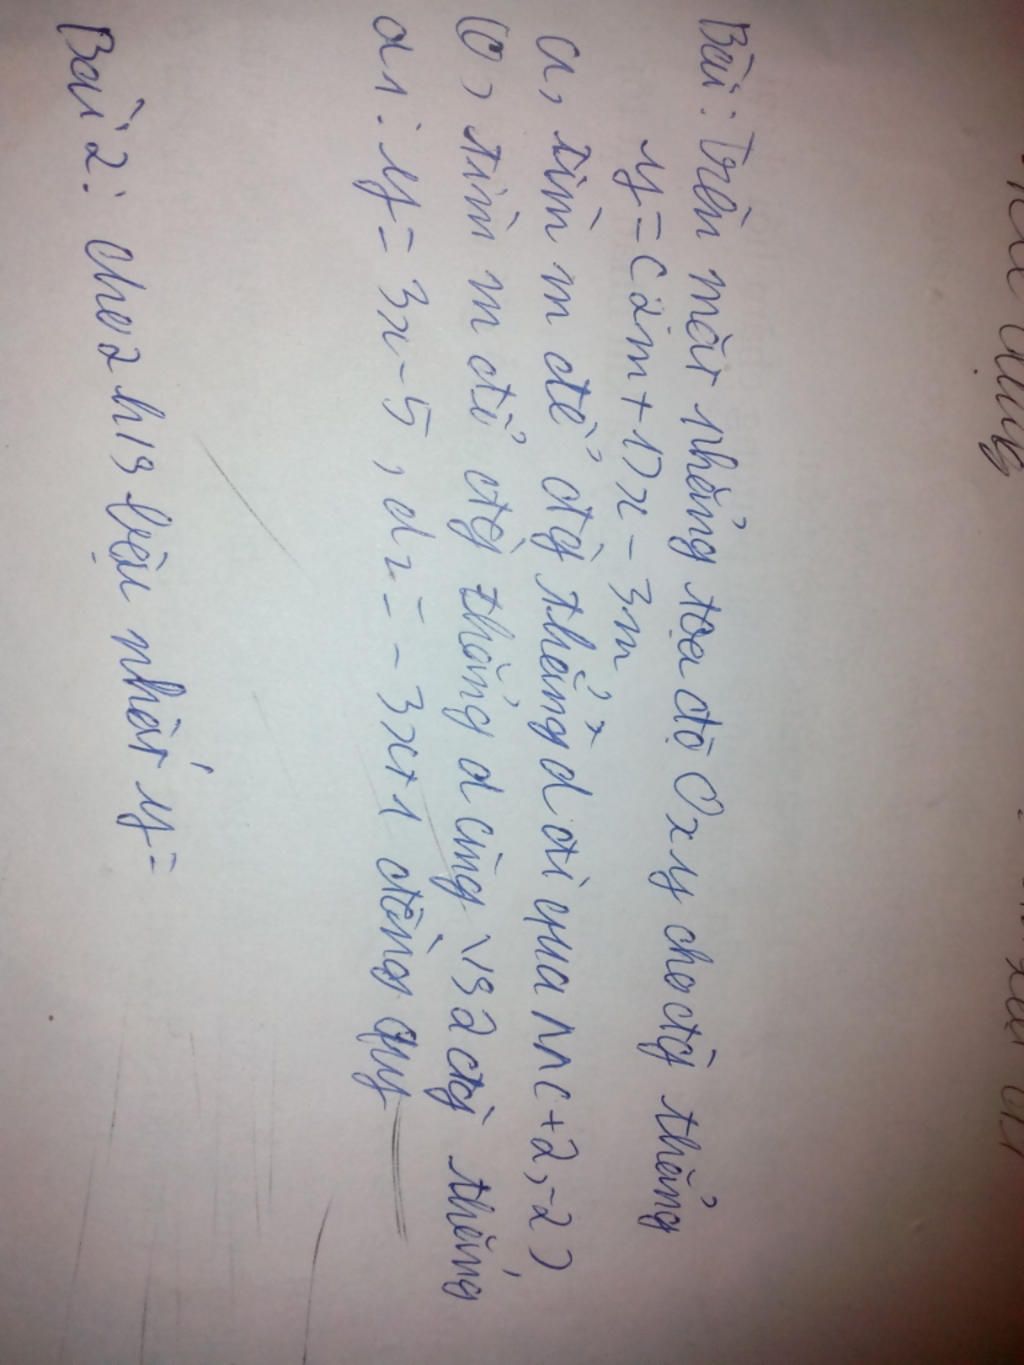 Bài: Trên mặt phẳng tọa độ Oxy cho đg thẳng
y = (2m + 1)x - 3m
a, tìm m để đg thẳng d đi qua M(+2,-2)
b, tìm m để đg thẳng d cùng vs 2 đg thẳng
d1: y = 3x - 5, d2 = - 3x+1 đồng quy
Bài 2: cho 2 h/s bậc nhất y =